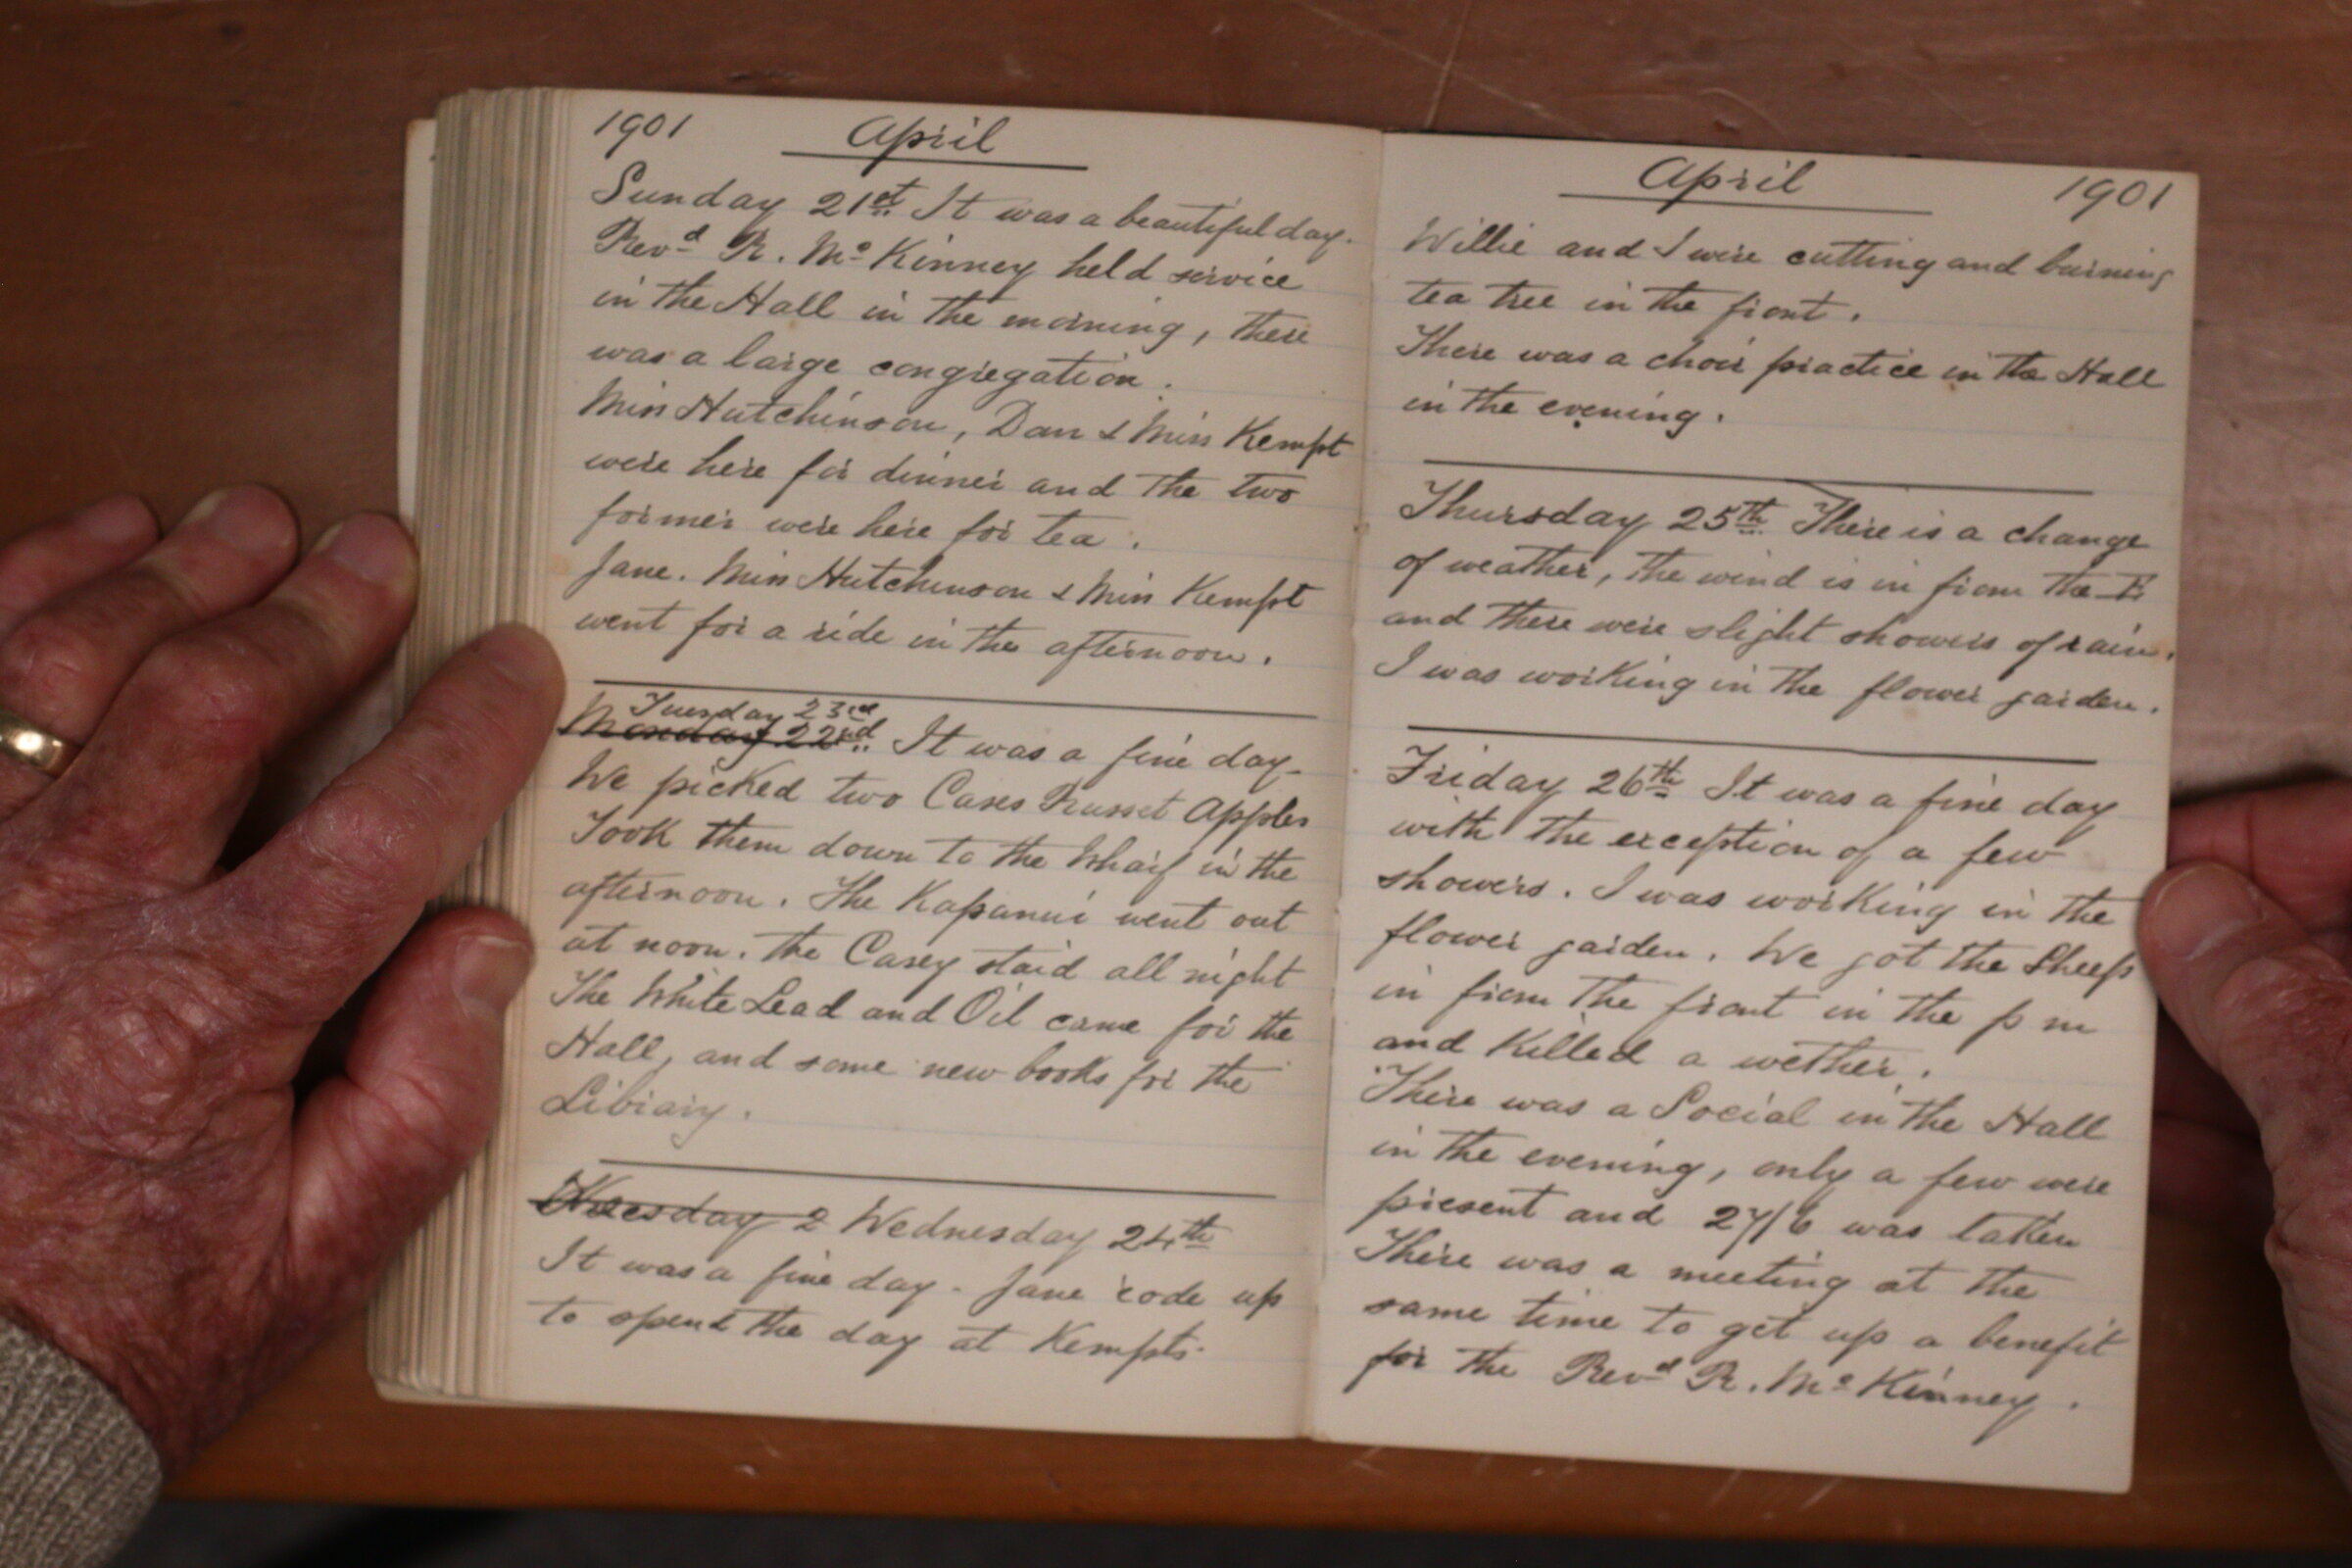 1901 April
Sunday 21st It was a beautiful day.
Revd R. Mc Kinney held service
in the Hall in the morning, there
was a large congregation.
Miss Hutchinson, Dan & Miss Kempt
were here for dinner and the two
former were here for tea.
Jane. Miss Hutchinson & Miss Kempt
went for a ride in the afternoon.
Tuesday 23rd
Monday 22nd. It was a fine day.
We picked two Cases Russet Apples
Took them down to the Wharf in the
afternoon. The Kapanui went out
at noon. the Casey staid all night
The White Lead and Oil came for the
Hall, and some new books for the
Library.
Tuesday 2 Wednesday 24th
It was a fine day. Jane rode up
to spend the day at Kempts.
April 1901
Willie and I were cutting and burning
tea tree in the front.
There was a choir practice in the Hall
in the evening.
Thursday 25th. There is a change
of weather, the wind is in from the E
and there were slight showers of rain.
I was working in the flower garden.
Friday 26th It was a fine day
with the exception of a few
showers. I was working in the
flower garden. We got the Sheep
in from the front in the p m
and Killed a wether.
There was a Social in the Hall
in the evening, only a few were
present and 27/6 was taken
There was a meeting at the
same time to get up a benefit
for the Revd R. Mc Kinney.